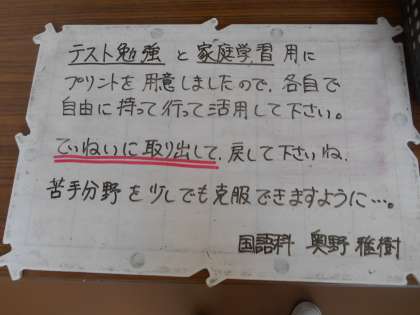 テスト勉強 と 家庭学習 用に
プリントを用意しましたので、各自で
自由に持って行って活用して下さい。
ていねいに取り出して、戻して下さいね。
苦手分野を少しでも克服できますように…。
国語科 奥野 雅樹